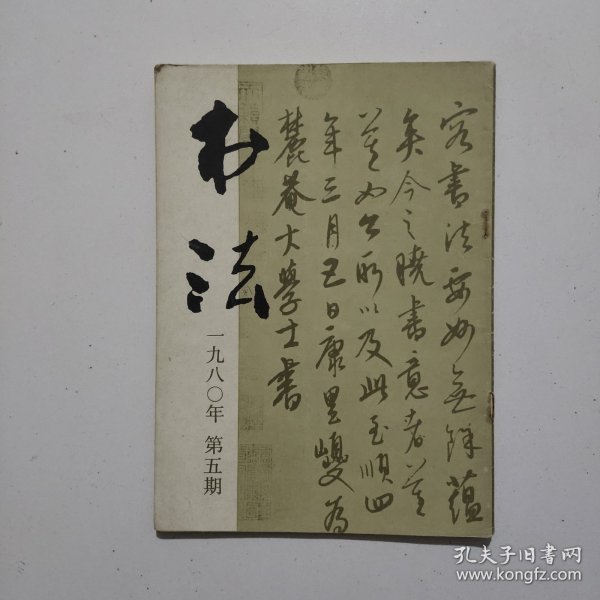 书法
一九八〇年 第五期
容书法要妙无馀蕴
矣今之晓书意者莫
莫如公所以及此至順四
年三月五日康里巙为
麓菴大學士書
孔夫子旧书网
www.kongfz.com